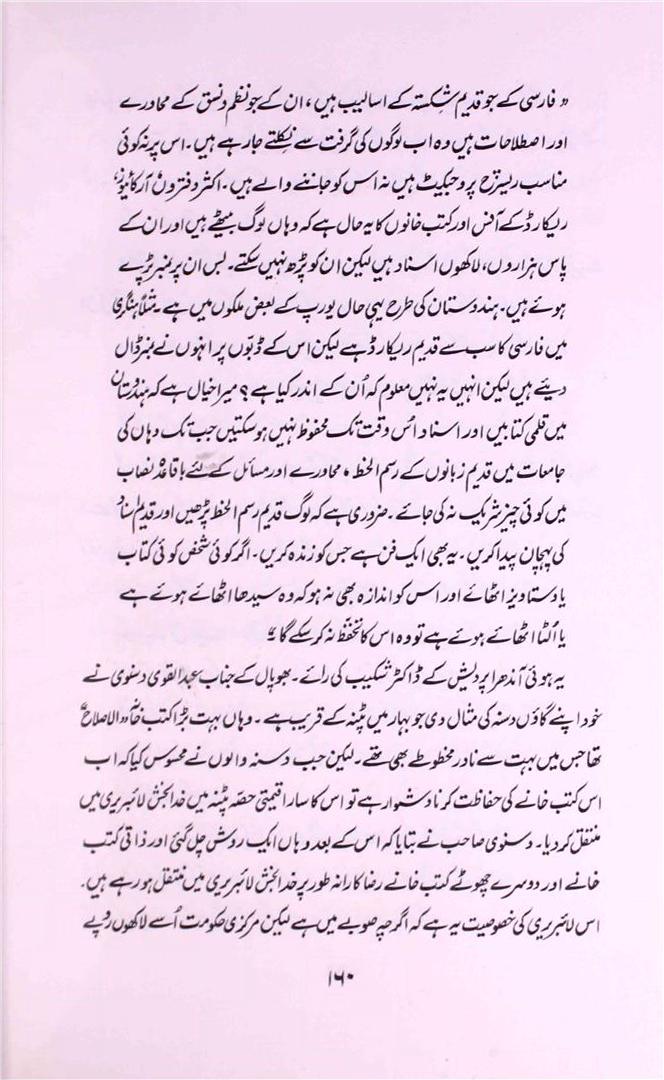 " فارسی کے جو قدیم شکستہ کے اسالیب ہیں ، ان کے جو نظم و نسق کے محاورے
اور اصطلاحات ہیں وہ اب لوگوں کی گرفت سے نکلتے جا رہے ہیں ۔ اس پر نہ کوئی
مناسب ریسرچ پروجیکٹ ہیں نہ اس کو جاننے والے ہیں ۔ اکثر دفتروں، آرکائیوز،
ریکارڈ کے آفس اور کتب خانوں کا یہ حال ہے کہ وہاں لوگ بیٹھے ہیں اور ان کے
پاس ہزاروں، لاکھوں اسناد ہیں لیکن ان کو پڑھ نہیں سکتے ۔ بس ان پر نمبر پڑے
ہوئے ہیں ۔ ہندوستان کی طرح یہی حال یورپ کے بعض ملکوں میں ہے ۔ مثلاً ہنگری
میں فارسی کا سب سے قدیم ریکارڈ ہے لیکن اس کے ڈبّوں پر انہوں نے نمبر ڈال
دیئے ہیں لیکن انہیں یہ نہیں معلوم کہ اُن کے اندر کیا ہے ؟ میرا خیال ہے کہ ہندوستان
میں قلمی کتابیں اور اسناد اُس وقت تک محفوظ نہیں ہو سکتیں جب تک وہاں کی
جامعات میں قدیم زبانوں کے رسم الخط ، محاورے اور مسائل کے لئے باقاعدہ نصاب
میں کوئی چیز شریک نہ کی جائے ۔ ضروری ہے کہ لوگ قدیم رسم الخط پڑھیں اور قدیم اسناد
کی پہچان پیدا کریں ۔ یہ بھی ایک فن ہے جس کو زندہ کریں ۔ اگر کوئی شخص کوئی کتاب
یا دستاویز اٹھائے اور اس کو اندازہ بھی نہ ہو کہ وہ سیدھا اٹھائے ہوئے ہے
یا اُلٹا اٹھائے ہوئے ہے تو وہ اس کا تحفّظ نہ کر سکے گا "
یہ ہوئی آندھرا پردیش کے ڈاکٹر شکیب کی رائے ۔ بھوپال کے جناب عبدالقوی دسنوی نے
خود اپنے گاؤں دسنہ کی مثال دی جو بہار میں پٹنہ کے قریب ہے ۔ وہاں بہت بڑا کتب خانہ "الاصلاح"
تھا جس میں بہت سے نادر مخطوطے بھی تھے ۔ لیکن جب دسنہ والوں نے محسوس کیا کہ اب
اس کتب خانے کی حفاظت کرنا دشوار ہے تو اس کا سارا قیمتی حصّہ پٹنہ میں خدا بخش لائبریری میں
منتقل کر دیا ۔ دسنوی صاحب نے بتایا کہ اس کے بعد وہاں ایک روش چل گئی اور ذاتی کتب
خانے اور دوسرے چھوٹے کتب خانے رضاکارانہ طور پر خدا بخش لائبریری میں منتقل ہو رہے ہیں۔
اس لائبریری کی خصوصیت یہ ہے کہ اگرچہ صوبے میں ہے لیکن مرکزی حکومت اُسے لاکھوں روپے
۱۶۰